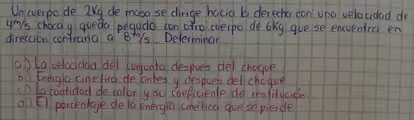 Un cuerpo de 2Kg de masa se dirige hacia la derecha con una velocidad de
4m/s choca y queda pegado con otro cuerpo de 6Kg que se encuentra en
dirección contraria a 8m/s. Determinar
a) La velocidad del conjunto despues del choque
b) Energia cinetica de antes y despues del choque
c) La cantidad de calor y su coeficiente de restitución
d) El porcentaje de la energia cinetica que se pierde